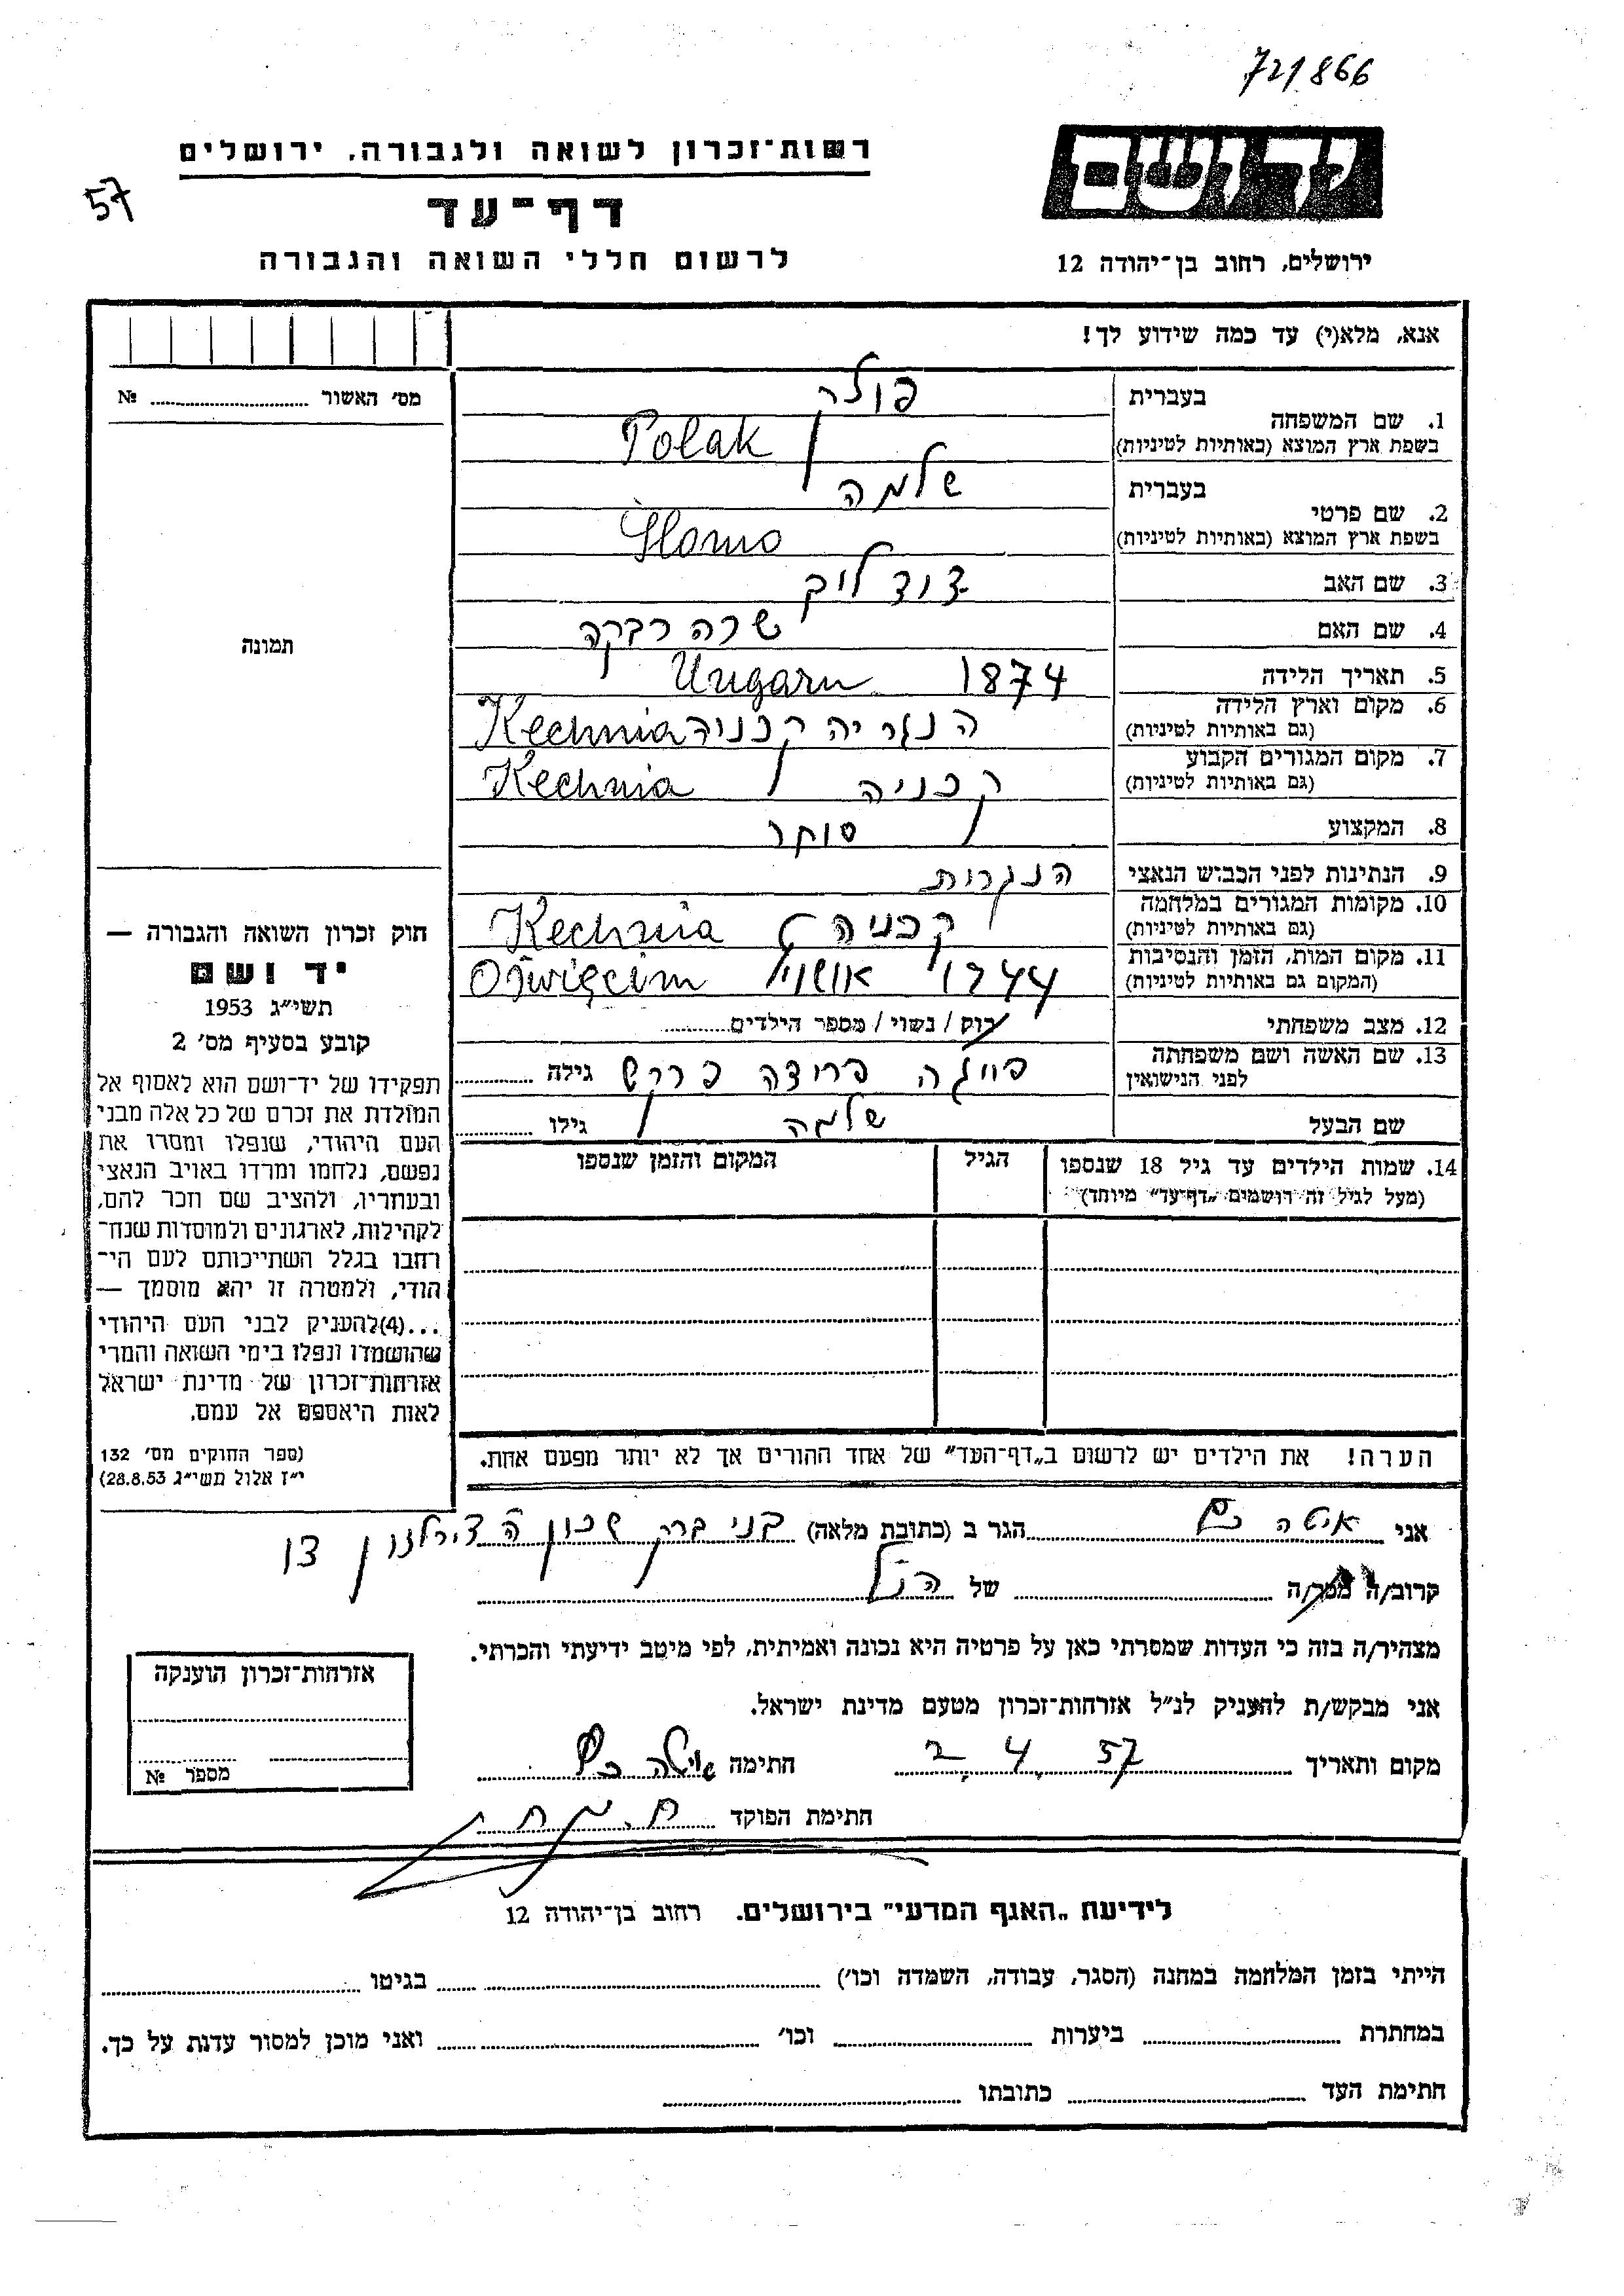 721866
רשות־זכרון לשואה ולגבורה, ירושלים
57
דף־עד
לרשום חללי השואה והגבורה
יד ושם
ירושלים, רחוב בן־יהודה 12
אנא, מלא(י) עד כמה שידוע לך!
מס׳ האשור № 
1. שם המשפחה
בעברית פולק
בשפת ארץ המוצא (באותיות לטיניות) Polak
2. שם פרטי
בעברית שלמה
בשפת ארץ המוצא (באותיות לטיניות) Słomo
3. שם האב דוד ליב
4. שם האם שרה רבקה
5. תאריך הלידה 1874 Ungarn
6. מקום וארץ הלידה
(גם באותיות לטיניות) הנגריה קכניה Kechnia
7. מקום המגורים הקבוע
(גם באותיות לטיניות) קכניה Kechnia
8. המקצוע סוחר
9. הנתינות לפני הכבוש הנאצי הנגרית
10. מקומות המגורים במלחמה
(גם באותיות לטיניות) קכניה Kechnia
11. מקום המות, הזמן והנסיבות
(המקום גם באותיות לטיניות) 1944 Oświęcim
12. מצב משפחתי רוק / נשוי / מספר הילדים
13. שם האשה ושם משפחתה
לפני הנישואין פרידה גילה
שם הבעל שלמה גילו
14. שמות הילדים עד גיל 18 שנספו
(מעל לגיל זה רושמים „דף־עד״ מיוחד)
הגיל
המקום והזמן שנספו
הערה! את הילדים יש לרשום ב„דף־העד״ של אחד ההורים אך לא יותר מפעם אחת.
תמונה
חוק זכרון השואה והגבורה —
יד ושם
תשי״ג 1953
קובע בסעיף מס׳ 2
תפקידו של יד־ושם הוא לאסוף אל
המולדת את זכרם של כל אלה מבני
העם היהודי, שנפלו ומסרו את
נפשם, נלחמו ומרדו באויב הנאצי
ובעוזריו, ולהציב שם וזכר להם,
לקהילות, לארגונים ולמוסדות שנח־
רבו בגלל השתייכותם לעם הי־
הודי, ולמטרה זו יהא מוסמך —
...(4)להעניק לבני העם היהודי
שהושמדו ונפלו בימי השואה והמרי
אזרחות־זכרון של מדינת ישראל
לאות היאספם אל עמם.
(ספר החוקים מס׳ 132
י״ז אלול תשי״ג 28.8.53)
אני איטה הגר ב (כתובת מלאה) בני ברק שכון דן
קרוב/ה מכר/ה של הנ״ל
מצהיר/ה בזה כי העדות שמסרתי כאן על פרטיה היא נכונה ואמיתית, לפי מיטב ידיעתי והכרתי.
אני מבקש/ת להעניק לנ״ל אזרחות־זכרון מטעם מדינת ישראל.
מקום ותאריך 2. 4. 57 חתימה
חתימת הפוקד
אזרחות־זכרון הוענקה
מספר №
לידיעת „האגף המדעי״ בירושלים. רחוב בן־יהודה 12
הייתי בזמן המלחמה במחנה (הסגר, עבודה, השמדה וכו׳) בגיטו
במחתרת ביערות וכו׳ ואני מוכן למסור עדות על כך.
חתימת העד כתובתו